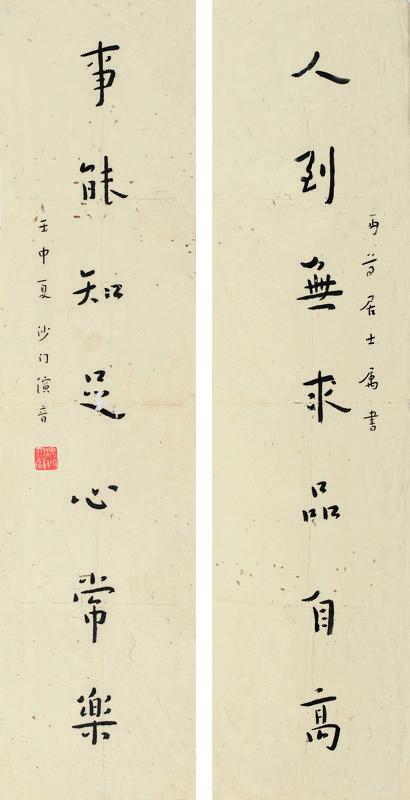 再居士属書
人到無求品自高
事能知足心常樂
壬申夏 沙门演音